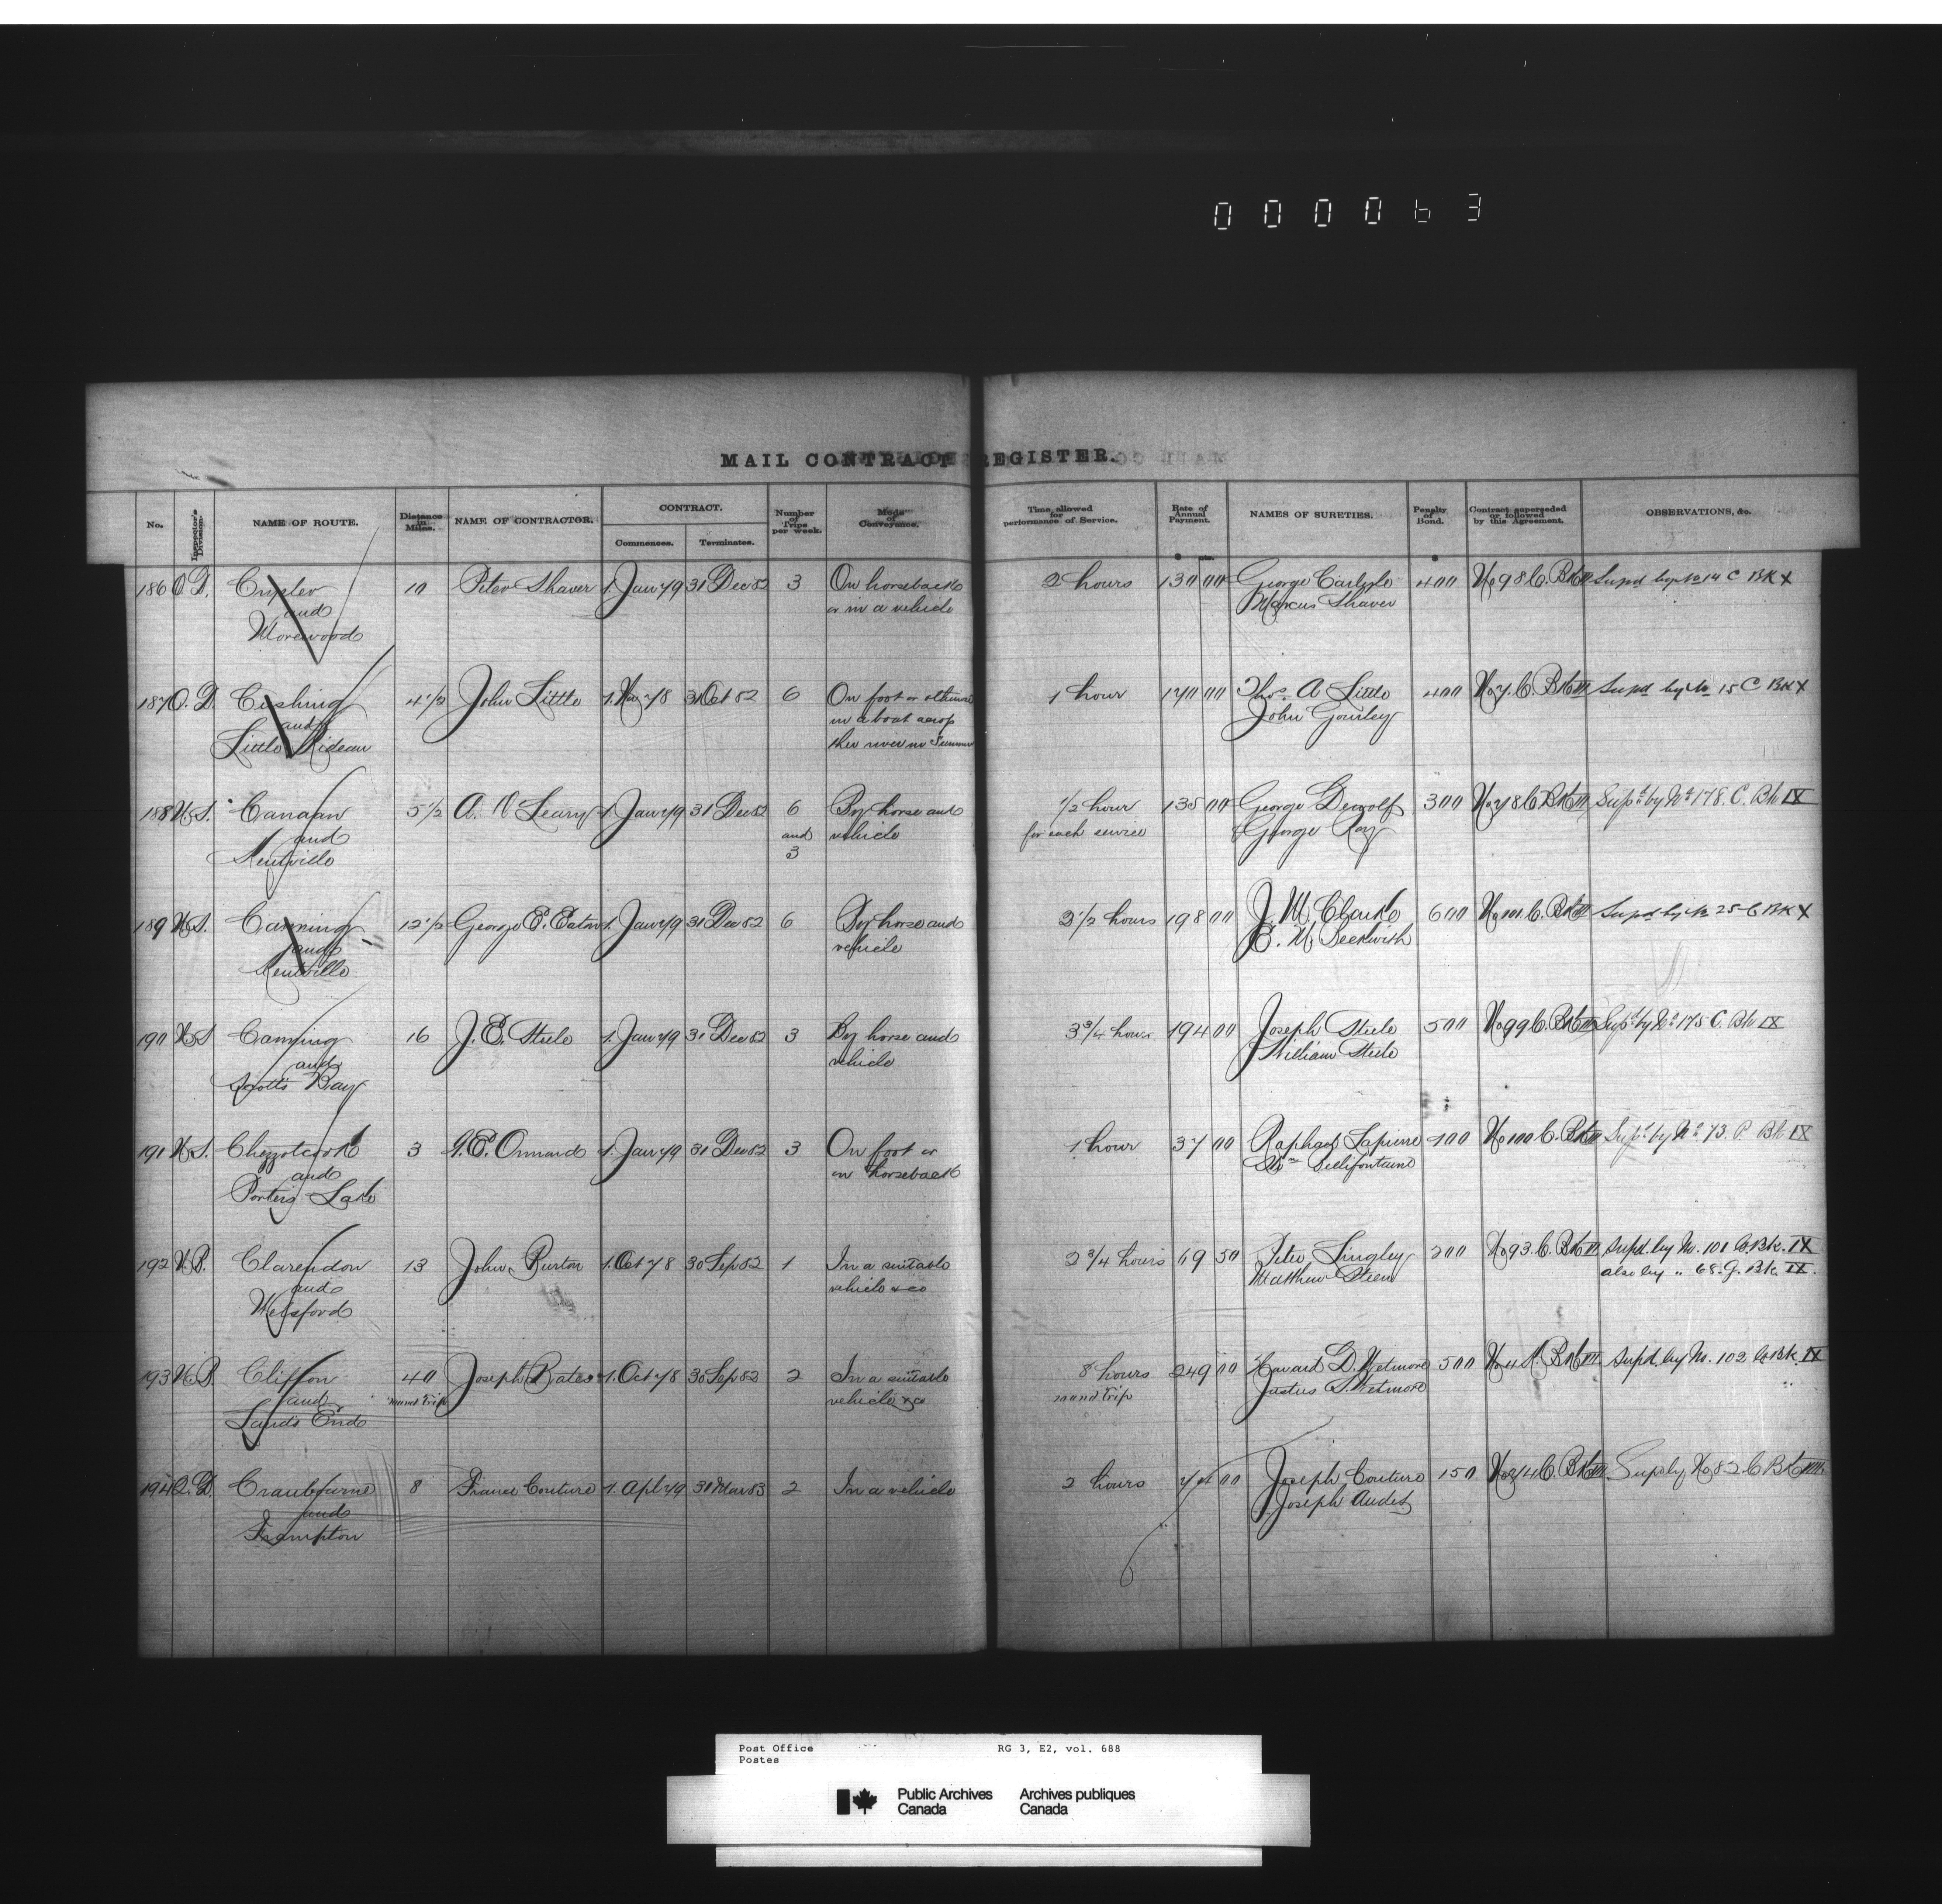 000063
MAIL CONTRACT REGISTER.
No. Inspector's Division. NAME OF ROUTE. Distance in Miles. NAME OF CONTRACTOR. CONTRACT. Commences. Terminates. Number of Trips per week. Mode of Conveyance. Time allowed for performance of Service. Rate of Annual Payment. NAMES OF SURETIES. Penalty of Bond. Contract superseded or followed by this Agreement. OBSERVATIONS, &c.
$ cts. $
186 O.D. Crysler 10 Peter Shaver 1. Jany 79 31 Dec 82 3 On horseback 2 hours 130 00 George Carlyle 400 No 98 C. Bk III Supd by No 14 C Bk X
and or in a vehicle Marcus Shaver
Morewood
187 O.D. Cushing 4 1/2 John Little 1. Nov 78 31 Oct 82 6 On foot or otherwise 1 hour 170 00 Thos. A Little 400 No 7. C. Bk III Supd by No 15 C Bk X
and in a boat across John Gourley
Little Rideau the river in Summer
188 N.S. Canaan 5 1/2 A. O'Leary 1. Jany 79 31 Dec 82 6 By horse and 1/2 hour 135 00 George Dewolf 300 No 78 C. Bk III Supd by No 178. C. Bk IX
and and vehicle for each service George Roy
Kentville 3
189 N.S. Canning 12 1/2 George E. Eaton 1. Jany 79 31 Dec 82 6 By horse and 2 1/2 hours 198 00 J. M. Clarke 600 No 101 C. Bk III Supd by No 25 C Bk X
and vehicle E. M. Beckwith
Kentville
190 N.S. Canning 16 J. E. Steele 1. Jany 79 31 Dec 82 3 By horse and 3 3/4 hours 194 00 Joseph Steele 500 No 99 C. Bk III Supd by No 175 C. Bk IX
and vehicle William Steele
Scott's Bay
191 N.S. Chezzetcook 3 G. E. Ormand 1. Jany 79 31 Dec 82 3 On foot or 1 hour 37 00 Raphael Lapierre 100 No 100 C. Bk III Supd by No 73. P. Bk IX
and on horseback Wm Bellifontaine
Porters Lake
192 N.B. Clarendon 13 John Burton 1. Oct 78 30 Sep 82 1 In a suitable 2 3/4 hours 69 50 Peter Lingley 200 No 93. C. Bk III Supd. by No. 101 C. Bk. IX
and vehicle &co Matthew Steen also by " 68. G. Bk. IX.
Welsford
193 N.B. Clifton 40 Joseph Bates 1. Oct 78 30 Sep 82 2 In a suitable 8 hours 249 00 Havard D. Wetmore 500 No 4 K. Bk III Supd. by No. 102 C. Bk. IX
and round trip vehicle &co round trip Justus S. Wetmore
Land's End
194 Q.D. Cranbourne 8 France Couture 1. Apl 79 31 Mar 83 2 In a vehicle 2 hours 74 00 Joseph Couture 150 No 214 C. Bk III Supd by No 82 C Bk VIII
and Joseph Audet
Frampton
Post Office RG 3, E2, vol. 688
Postes
Public Archives Archives publiques
Canada Canada